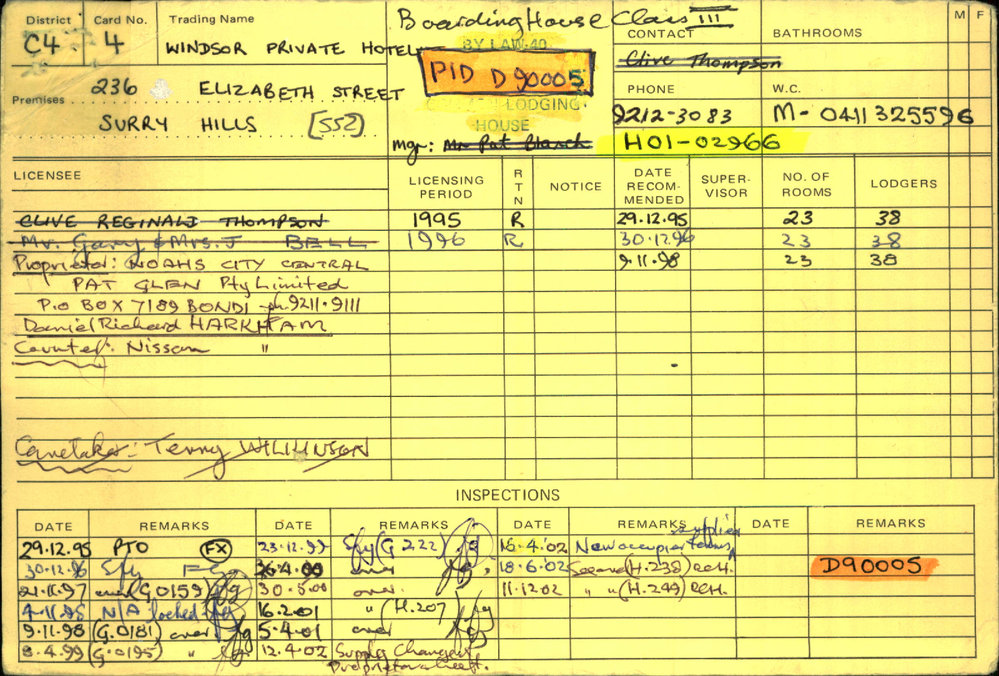 District
C4
Card No.
4
Trading Name
WINDSOR PRIVATE HOTEL
Boarding House Class III
BY LAW 40
PID D90005
LODGING
HOUSE
CONTACT
Clive Thompson
BATHROOMS
M F
Premises
236 ELIZABETH STREET
SURRY HILLS [552]
PHONE
9212-3083
W.C.
M- 0411325596
Mgr: Mr Pat Blanch
H01-02966
LICENSEE
LICENSING PERIOD
RTN
NOTICE
DATE RECOM-MENDED
SUPER-VISOR
NO. OF ROOMS
LODGERS
CLIVE REGINALD THOMPSON 1995 R 29.12.95 23 38
Mr. Gary & Mrs. J BELL 1996 R 30.12.96 23 38
Proprietor: NOAHS CITY CENTRAL 9.11.98 23 38
PAT GLEN Pty Limited
P.O BOX 7189 BONDI ph. 9211.9111
Daniel Richard HARKHAM
Nissan "
Caretaker: Terry WILKINSON
INSPECTIONS
DATE REMARKS DATE REMARKS DATE REMARKS DATE REMARKS
29.12.95 PTO FX 23.12.99 Sfy (G222) 16.4.02 New occupier
30.12.96 Sfy 26.4.00 over 18.6.02 (H.238) RCH. D90005
21.11.97 over G0159) 30.5.00 over 11.12.02 " " (H.249) RCH.
4.11.98 N/A locked 16.2.01 " (H.207
9.11.98 (G.0181) over 5.4.01 over
8.4.99 (G.0195) " 12.4.02